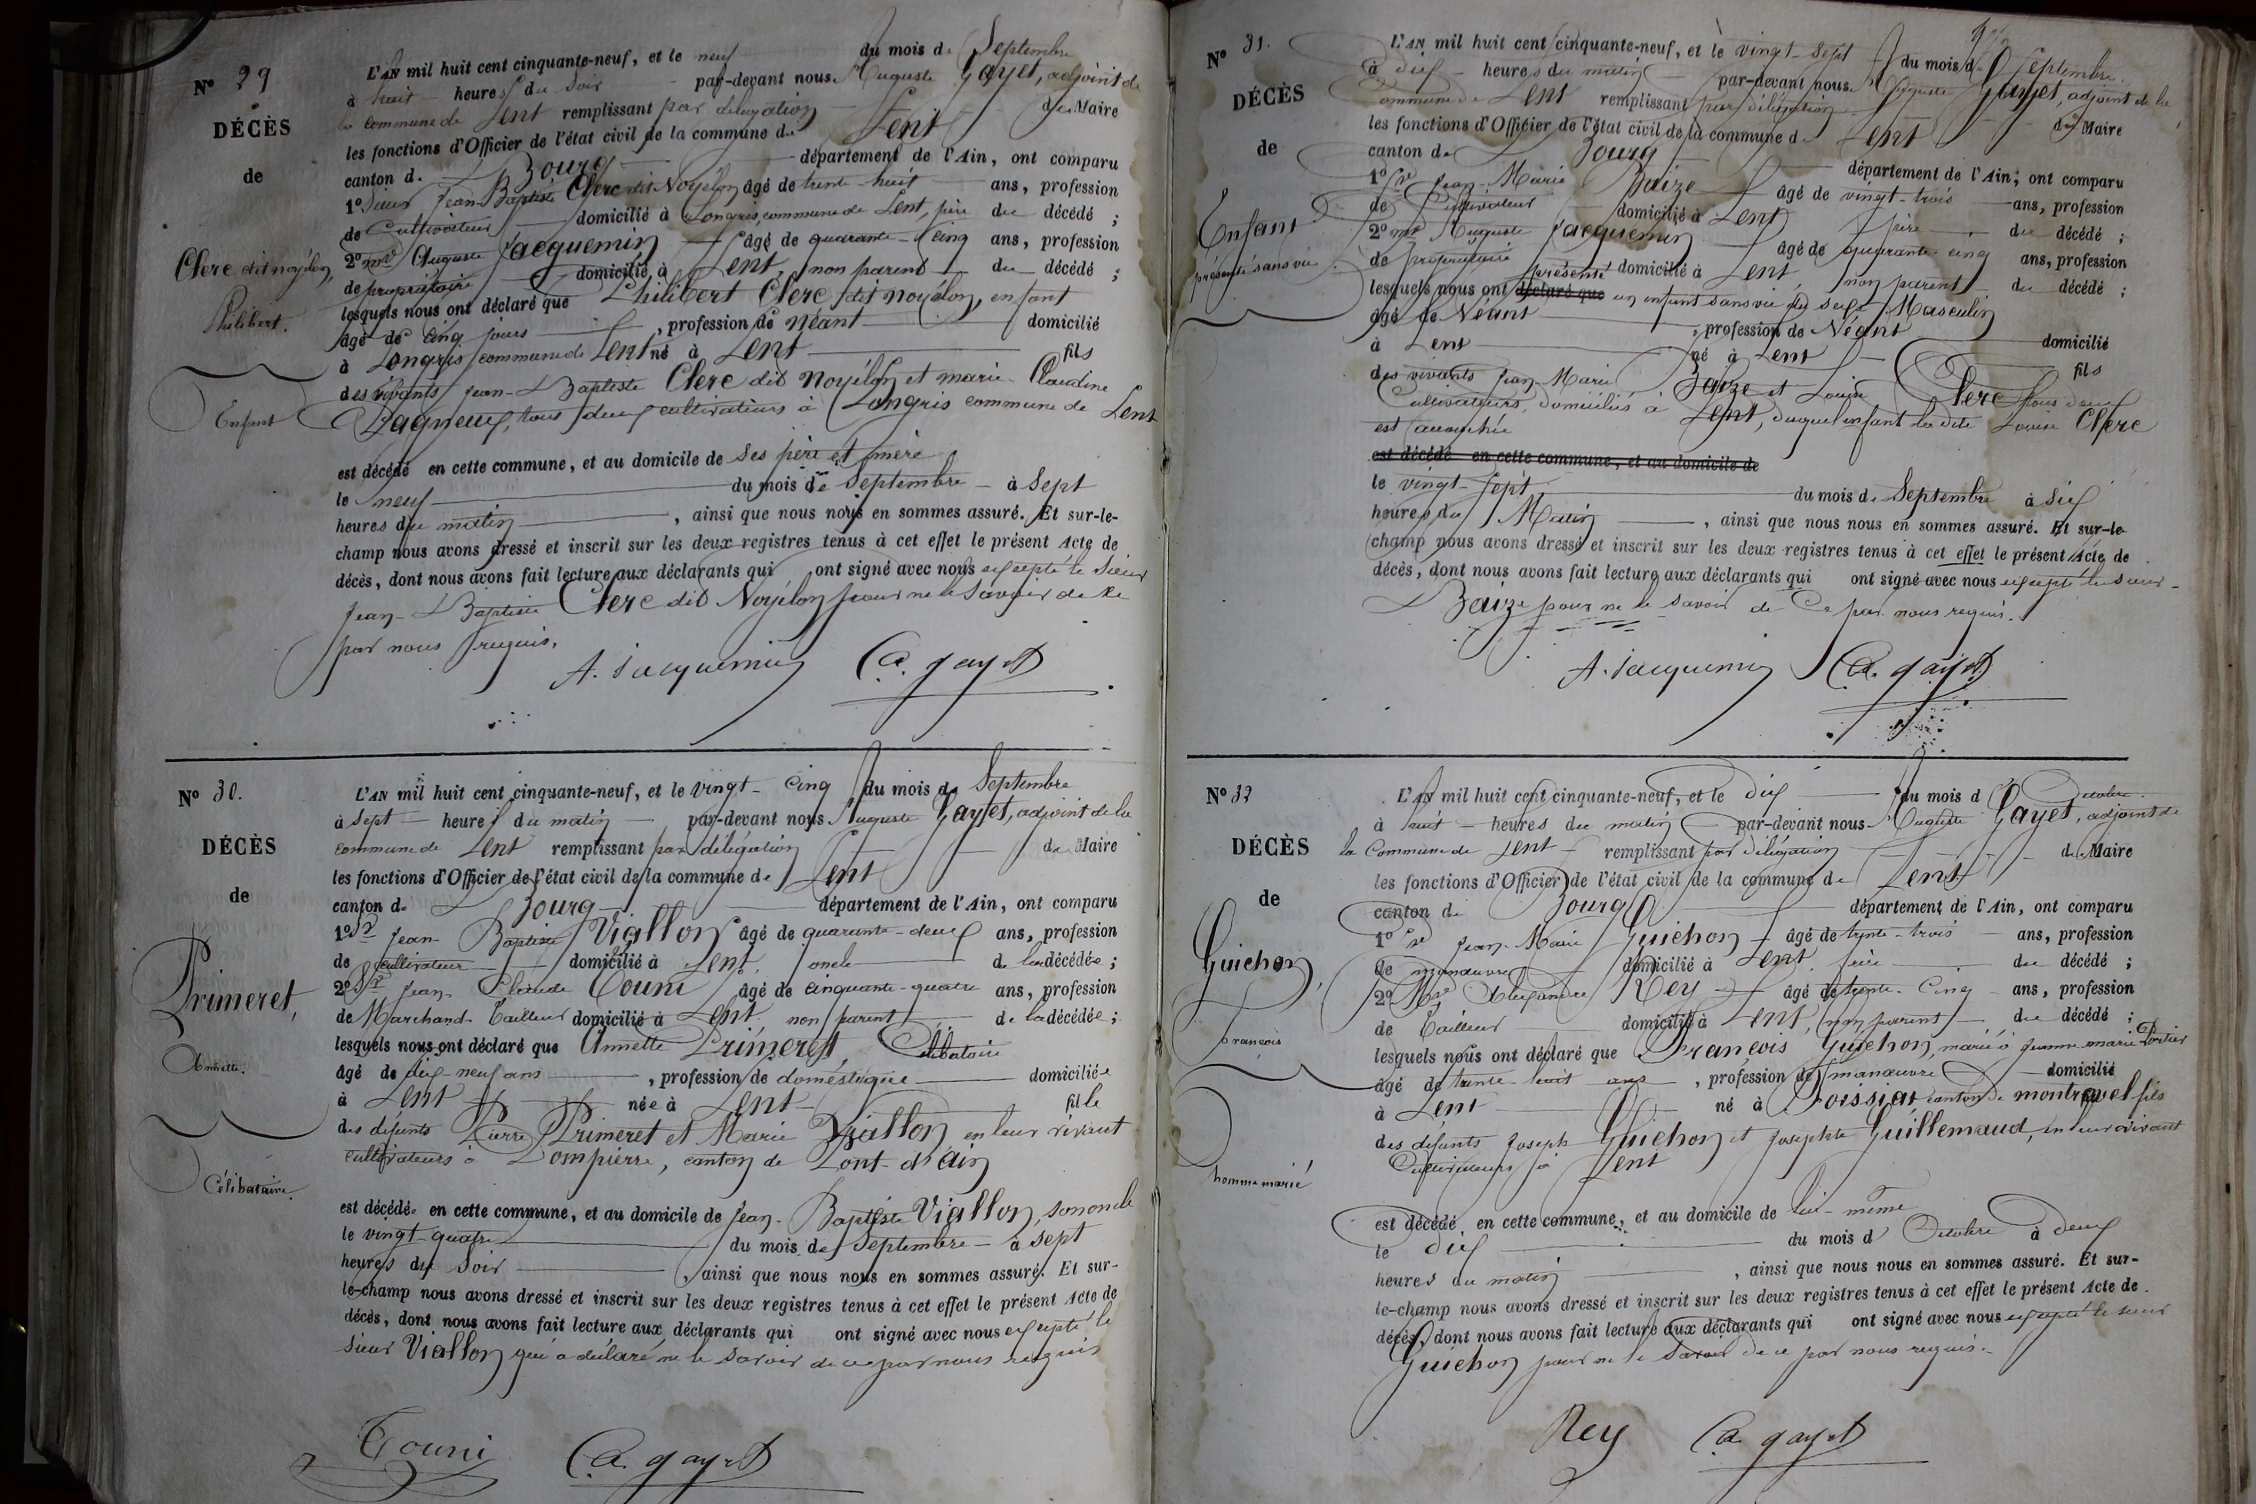 Nº 29
DÉCÈS
de
Clerc dit noyélon,
Philibert.
Enfant
L'AN mil huit cent cinquante-neuf, et le neuf du mois de Septembre
à huit heures du soir par-devant nous Auguste Gayet, adjoint de
la commune de Lent remplissant par délégation de Maire
les fonctions d'Officier de l'état civil de la commune de Lent
canton de Bourg département de l'Ain, ont comparu
1º Sieur Jean-Baptiste Clerc dit Noyélon âgé de trente-huit ans, profession
de Cultivateur domicilié à Longris, commune de Lent, père du décédé ;
2º Auguste Jacquemin âgé de quarante-cinq ans, profession
de propriétaire domicilié à Lent, non parent du décédé ;
lesquels nous ont déclaré que Philibert Clerc dit noyélon, enfant
âgé de cinq jours , profession de Néant domicilié
à Longris commune de Lent né à Lent fils
des vivants Jean-Baptiste Clerc dit Noyélon et marie Claudine
Pagneux, tous deux cultivateurs à Longris commune de Lent
est décédé en cette commune, et au domicile de ses père et mère
le neuf du mois de Septembre à Sept
heures du matin , ainsi que nous nous en sommes assuré. Et sur-le-
champ nous avons dressé et inscrit sur les deux registres tenus à cet effet le présent Acte de
décès, dont nous avons fait lecture aux déclarants qui ont signé avec nous excepté le Sieur
Jean-Baptiste Clerc dit Noyélon pour ne le savoir de ce
par nous requis.
A. Jacquemin A. gayet
Nº 30.
DÉCÈS
de
Primeret,
Annette.
Célibataire.
L'AN mil huit cent cinquante-neuf, et le vingt-cinq du mois de Septembre
à sept heures du matin par-devant nous Auguste Gayet, adjoint de la
commune de Lent remplissant par délégation de Maire
les fonctions d'Officier de l'état civil de la commune de Lent
canton de Bourg département de l'Ain, ont comparu
1º Sr Jean-Baptiste Viallon âgé de quarante-deux ans, profession
de cultivateur domicilié à Lent, oncle de la décédée ;
2º Sr Jean Claude Couni âgé de cinquante-quatre ans, profession
de Marchand-Tailleur domicilié à Lent non parent de la décédée ;
lesquels nous ont déclaré que Annette Primeret, Célibataire
âgé de dix-neuf ans , profession de domestique domiciliée
à Lent née à Lent fille
des défunts Pierre Primeret et Marie Viallon, en leur vivant
cultivateurs à Dompierre, canton de Pont-d'Ain
est décédée en cette commune, et au domicile de Jean-Baptiste Viallon, son oncle
le vingt-quatre du mois de Septembre à sept
heures du Soir , ainsi que nous nous en sommes assuré. Et sur-
le-champ nous avons dressé et inscrit sur les deux registres tenus à cet effet le présent Acte de
décès, dont nous avons fait lecture aux déclarants qui ont signé avec nous excepté le
sieur Viallon qui a déclaré ne le savoir de ce par nous requis
Couni A. gayet
Nº 31.
DÉCÈS
de
Enfant
présenté sans vie
L'AN mil huit cent cinquante-neuf, et le vingt-Sept du mois de Septembre
à dix heures du matin par-devant nous Auguste Gayet, adjoint de la
commune de Lent remplissant par délégation de Maire
les fonctions d'Officier de l'état civil de la commune de Lent
canton de Bourg département de l'Ain, ont comparu
1º Sr Jean-Marie Baize âgé de vingt-trois ans, profession
de Cultivateur domicilié à Lent père du décédé ;
2º Auguste Jacquemin âgé de quarante-cinq ans, profession
de propriétaire domicilié à Lent non parent du décédé ;
lesquels nous ont déclaré que présenté un enfant sans vie du sexe Masculin
âgé de Néant , profession de Néant domicilié
à Lent né à Lent fils
des vivants Jean-Marie Baize et Louise Clerc tous deux
Cultivateurs, domiciliés à Lent, duquel enfant la dite Louise Clerc
est accouchée
est décédé en cette commune, et au domicile de
le vingt-sept du mois de Septembre à Six
heures du Matin , ainsi que nous nous en sommes assuré. Et sur-le-
champ nous avons dressé et inscrit sur les deux registres tenus à cet effet le présent Acte de
décès, dont nous avons fait lecture aux déclarants qui ont signé avec nous excepté le sieur
Baize pour ne le savoir de Ce par nous requis.
A. Jacquemin A. gayet
Nº 32
DÉCÈS
de
Guichon,
francois
homme marié
L'AN mil huit cent cinquante-neuf, et le dix du mois d'Octobre
à huit heures du matin par-devant nous Auguste Gayet, adjoint de
la Commune de Lent remplissant par délégation de Maire
les fonctions d'Officier de l'état civil de la commune de Lent
canton de Bourg département de l'Ain, ont comparu
1º Sr Jean-Marie Guichon âgé de trente-trois ans, profession
de manœuvre domicilié à Lent, frère du décédé ;
2º Mr Alexandre Rey âgé de trente-Cinq ans, profession
de Tailleur domicilié à Lent, non parent du décédé ;
lesquels nous ont déclaré que Francois Guichon, marié à Jeanne-marie
âgé de trente-huit ans , profession de manœuvre domicilié
à Lent né à Foissiat canton de montrevel fils
des défunts Joseph Guichon et Josephte Guillemaud, en leur vivant
Cultivateurs à Lent
est décédé en cette commune, et au domicile de lui-même
le dix du mois d'Octobre à deux
heures du matin , ainsi que nous nous en sommes assuré. Et sur-
le-champ nous avons dressé et inscrit sur les deux registres tenus à cet effet le présent Acte de
décès, dont nous avons fait lecture aux déclarants qui ont signé avec nous excepté le sieur
Guichon pour ne le Savoir de ce par nous requis.
Rey A. gayet